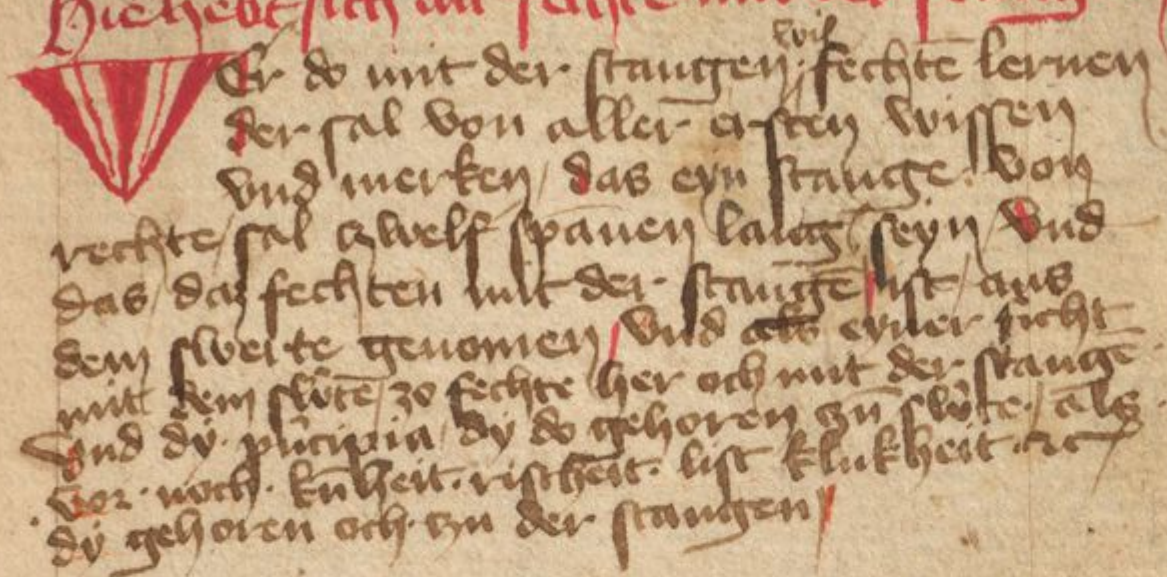 Hie hebt sich an fechte mit der stangen
Er do mit der stangen wil fechtē lernen
der sal von aller ersten wissen
vnd merken / das eyn stange von
rechte / sal czwelf spañen lang seyn / vnd
das / das fechten mit der stangē / ist / aus
dem swerte genomen / vnd als eyner ficht
mit dem sw̃te / zo fechte her och mit der stangē
vnd dy prĩcipia / dy do gehoren czũ sw̃te / als
vor · noch · kũheit · rischeit · list klukheit · ⁊c
dy gehoren och czu der stangen /